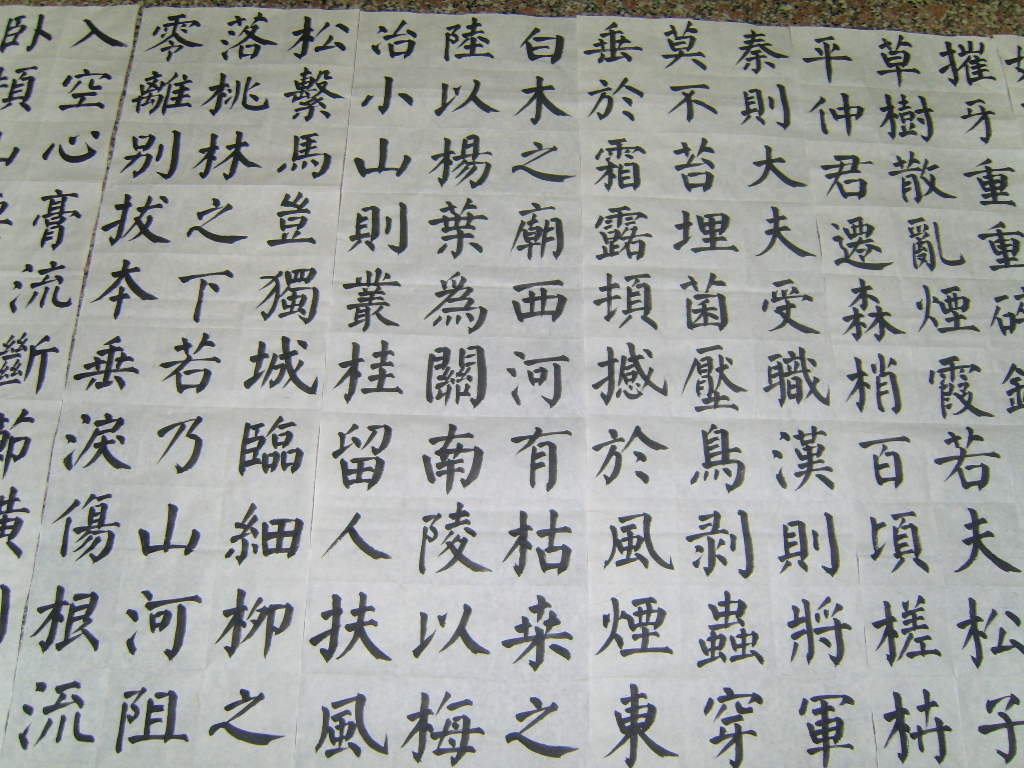 摧牙重重碎
草樹散亂煙霞若夫松子
平仲君遷森梢百頃槎枿
秦則大夫受職漢則將軍
莫不苔埋菌壓鳥剥蟲穿
垂於霜露頓撼於風煙東
白木之廟西河有枯桒之
陸以楊葉為關南陵以梅
冶小山則叢桂留人扶風
松繫馬豈獨城臨細柳之
落桃林之下若乃山河阻
零離别拔本垂淚傷根流
入空心膏流斷節橫
卧頓山